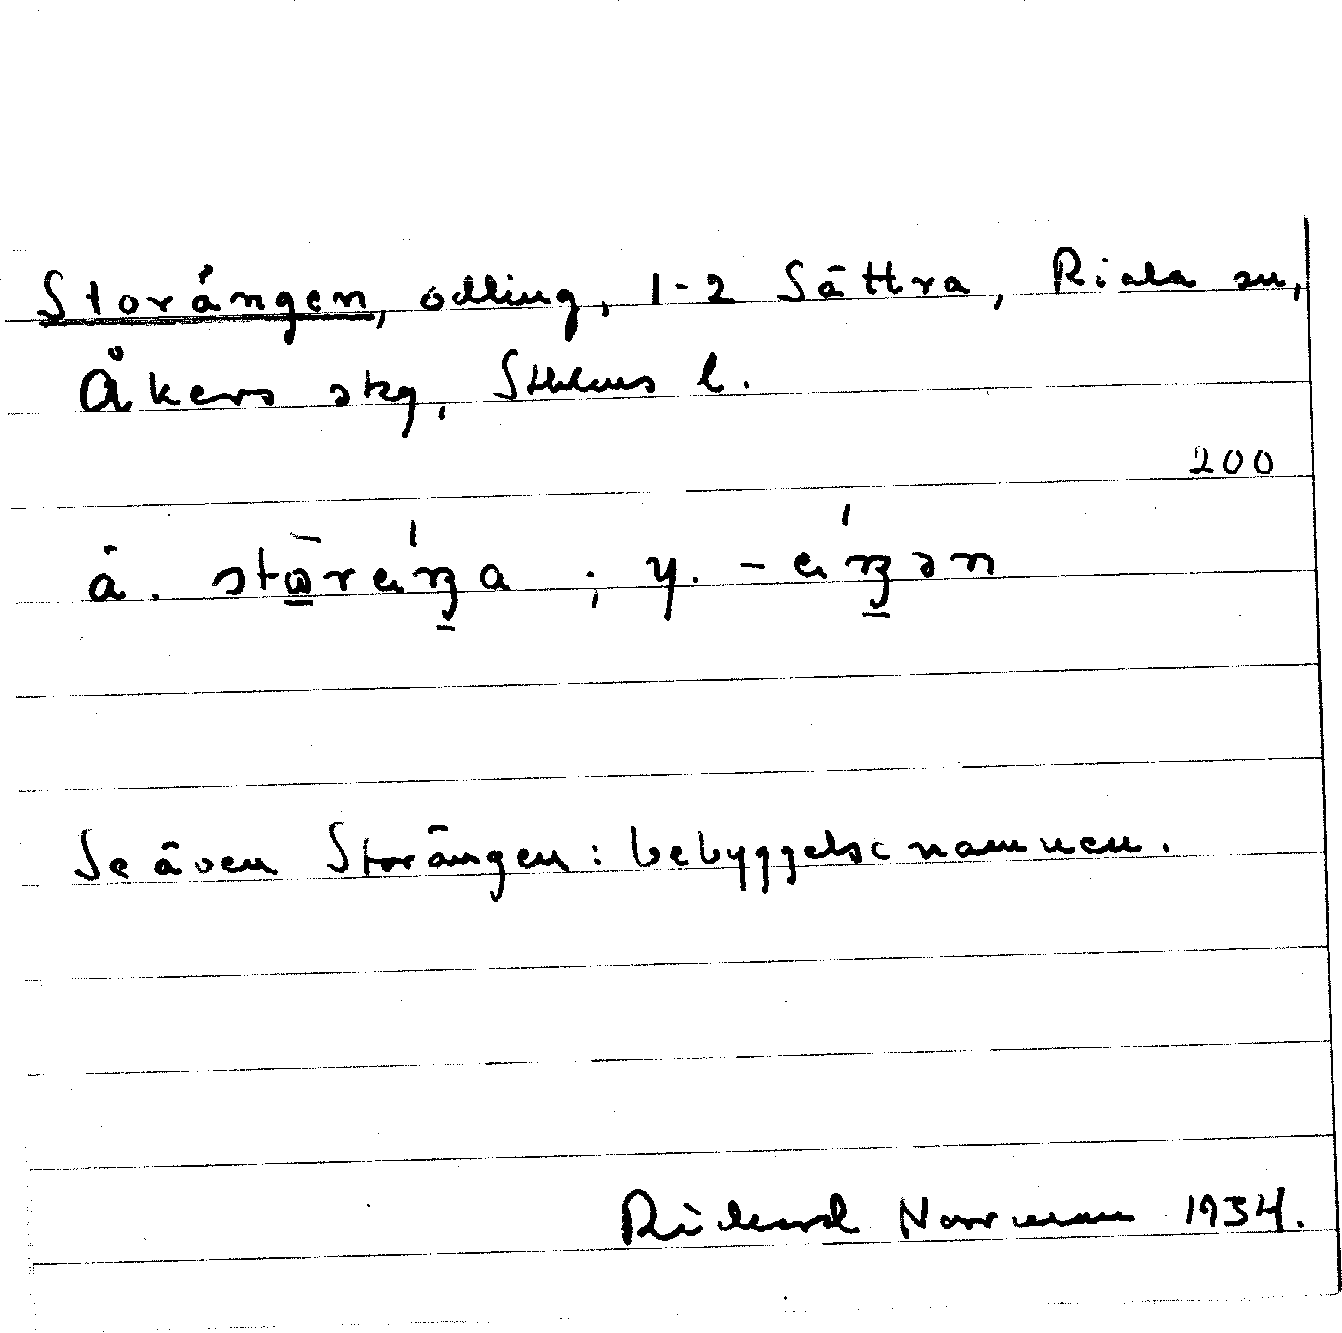 Storängen, odling, 1-2 Sättra, Riala sn,
Åkers skg, Sthlms l.
200
ä. stω̄reŋ́a ; y. - eŋ́ən
Se även Storängen: bebyggelsenamnen.
Rickard Norrman 1934.